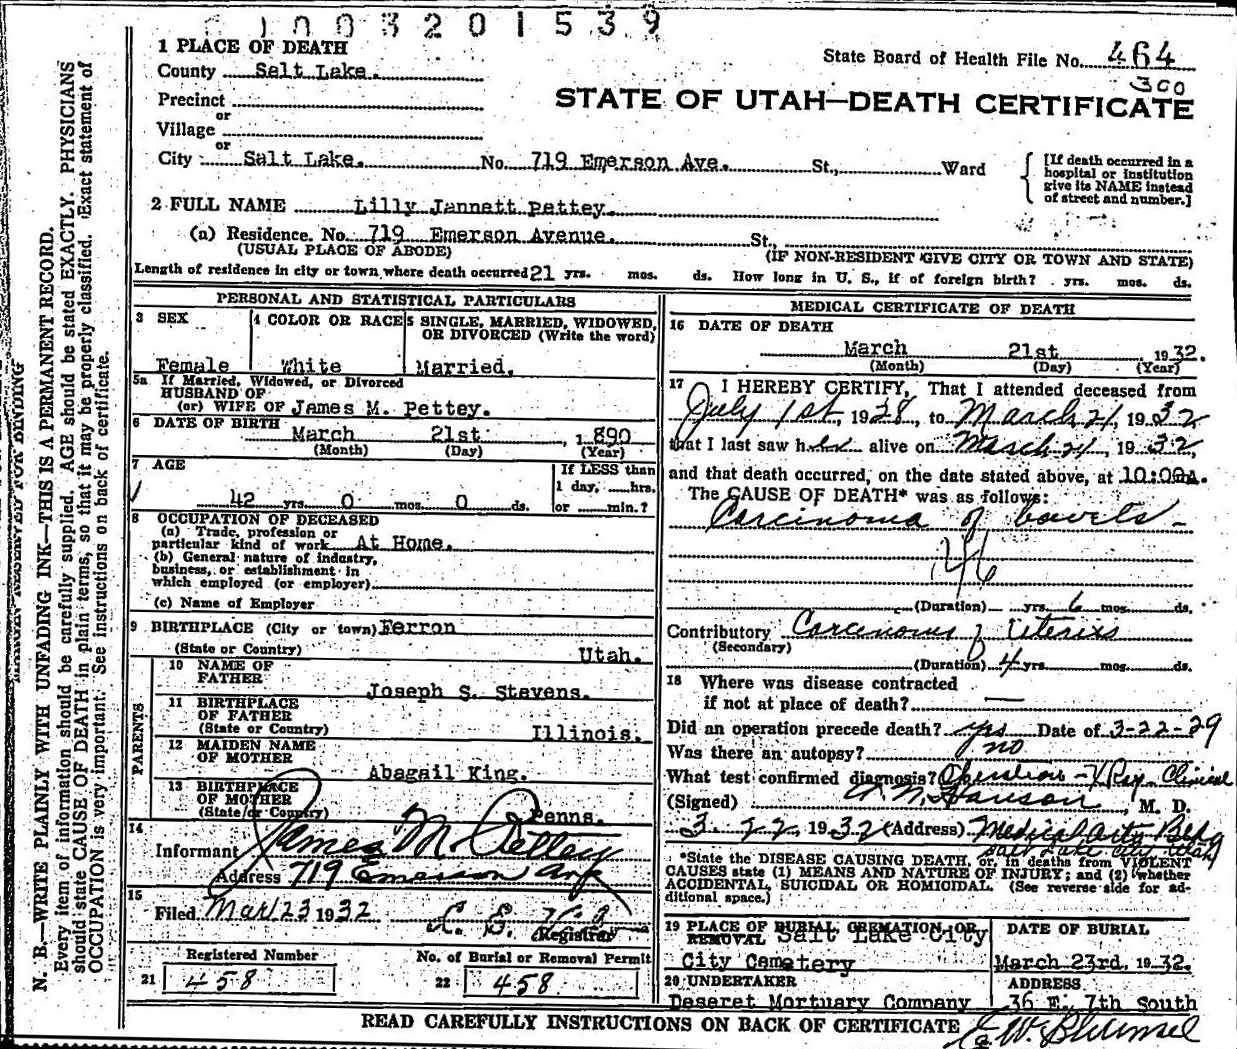 1003201539
1 PLACE OF DEATH
State Board of Health File No. 464
300
County Salt Lake.
STATE OF UTAH—DEATH CERTIFICATE
Precinct
or
Village
or
City Salt Lake. No. 719 Emerson Ave. St., Ward
[If death occurred in a
hospital or institution
give its NAME instead
of street and number.]
2 FULL NAME Lilly Jannett pettey.
(a) Residence. No. 719 Emerson Avenue. St.,
(USUAL PLACE OF ABODE) (IF NON-RESIDENT GIVE CITY OR TOWN AND STATE)
Length of residence in city or town where death occurred 21 yrs. mos. ds. How long in U. S., if of foreign birth? yrs. mos. ds.
PERSONAL AND STATISTICAL PARTICULARS
3 SEX
Female
4 COLOR OR RACE
White
5 SINGLE, MARRIED, WIDOWED,
OR DIVORCED (Write the word)
Married.
5a If Married, Widowed, or Divorced
HUSBAND OF
(or) WIFE OF James M. Pettey.
6 DATE OF BIRTH
March 21st 1890
(Month) (Day) (Year)
7 AGE
42 yrs. 0 mos. 0 ds.
If LESS than
1 day, hrs.
or min.?
8 OCCUPATION OF DECEASED
(a) Trade, profession or
particular kind of work At Home.
(b) General nature of industry,
business, or establishment in
which employed (or employer)
(c) Name of Employer
9 BIRTHPLACE (City or town) Ferron
(State or Country) Utah.
PARENTS
10 NAME OF
FATHER
Joseph S. Stevens.
11 BIRTHPLACE
OF FATHER
(State or Country) Illinois.
12 MAIDEN NAME
OF MOTHER
Abagail King.
13 BIRTHPLACE
OF MOTHER
(State or Country) Penns.
14
Informant James M. Pettey
Address 719 Emerson Ave
15
Filed Mar 23 1932
Registrar
Registered Number
21 458
No. of Burial or Removal Permit
22 458
MEDICAL CERTIFICATE OF DEATH
16 DATE OF DEATH
March 21st 1932.
(Month) (Day) (Year)
17 I HEREBY CERTIFY, That I attended deceased from
July 1st, 1928, to March 21, 1932
that I last saw her alive on March 21, 1932,
and that death occurred, on the date stated above, at 10:00a.m.
The CAUSE OF DEATH* was as follows:
Carcinoma of bowels -
46
(Duration) yrs. 6 mos. ds.
Contributory Carcinoma of Uterus
(Secondary)
(Duration) 4 yrs. mos. ds.
18 Where was disease contracted
if not at place of death? —
Did an operation precede death? yes Date of 3-22-29
Was there an autopsy? no
What test confirmed diagnosis? Operation - X Ray - Clinical
(Signed) Hanson, M. D.
3 - 22 1932 (Address) Medical Arts Bldg
Salt Lake City Utah
*State the DISEASE CAUSING DEATH, or, in deaths from VIOLENT
CAUSES state (1) MEANS AND NATURE OF INJURY; and (2) whether
ACCIDENTAL, SUICIDAL OR HOMICIDAL. (See reverse side for ad-
ditional space.)
19 PLACE OF BURIAL, CREMATION, OR
REMOVAL Salt Lake City
City Cemetery
DATE OF BURIAL
March 23rd, 1932.
20 UNDERTAKER
Deseret Mortuary Company
ADDRESS
36 E. 7th South
READ CAREFULLY INSTRUCTIONS ON BACK OF CERTIFICATE
N. B.—WRITE PLAINLY WITH UNFADING INK—THIS IS A PERMANENT RECORD.
Every item of information should be carefully supplied. AGE should be stated EXACTLY. PHYSICIANS
should state CAUSE OF DEATH in plain terms, so that it may be properly classified. Exact statement of
OCCUPATION is very important. See instructions on back of certificate.